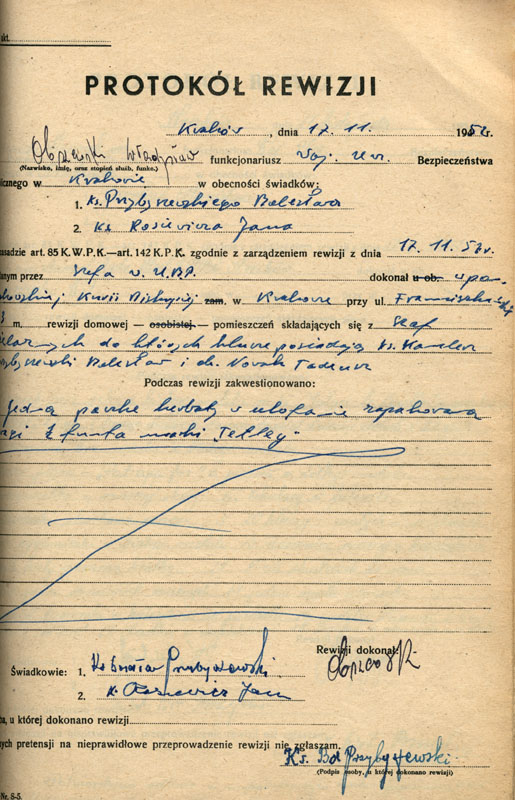 akt.
PROTOKÓŁ REWIZJI
Kraków, dnia 17. 11. 1952 r.
Władysław funkcjonariusz Woj. Urz. Bezpieczeństwa
(Nazwisko, imię, oraz stopień służb. funkc.)
licznego w Krakowie w obecności świadków:
1. ks. Przybyszewskiego Bolesława
2. Ks. Rosiewicza Jana
asadzie art. 85 K.W.P.K.—art. 142 K.P.K. zgodnie z zarządzeniem rewizji z dnia 17. 11. 52 r.
anym przez szefa W.U.B.P. dokonał u ob.
Kurii Biskupiej zam. w Krakowie przy ul. Franciszkańskiej
3 m. rewizji domowej — osobistej — pomieszczeń składających się z szaf
do których klucze posiadają ks. Kanclerz
Przybyszewski Bolesław i ks. Nowak Tadeusz
Podczas rewizji zakwestionowano:
jedną paczkę herbaty w celofanie zapakowaną
wagi ½ funta marki "Tetley"
Rewizji dokonał:
Świadkowie: 1. Ks Bolesław Przybyszewski
2. ks. Rosiewicz Jan
ba, u której dokonano rewizji
nych pretensji na nieprawidłowe przeprowadzenie rewizji nie zgłaszam.
Ks. Bol Przybyszewski
(Podpis osoby, u której dokonano rewizji)
Nr. S-5.